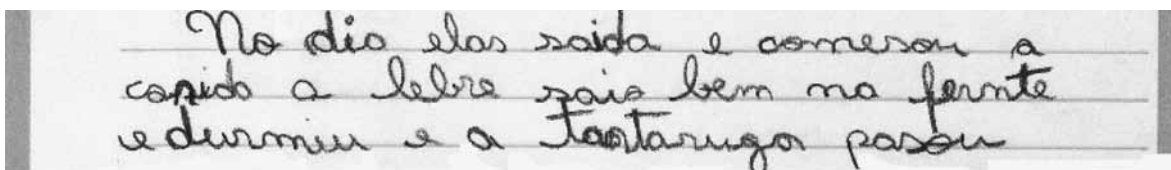 No dia elas saida e comesou a
corrida a lebre saio bem na fernte
e durmiu e a tartaruga pasou